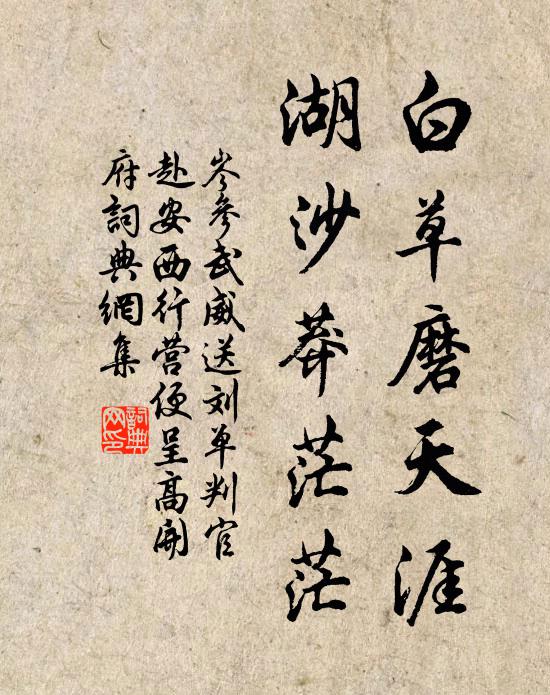 白草磨天涯
湖沙莽茫茫
岑參武威送刘单判官
赴安西行营便呈高開
府詞典網集
詞典网印